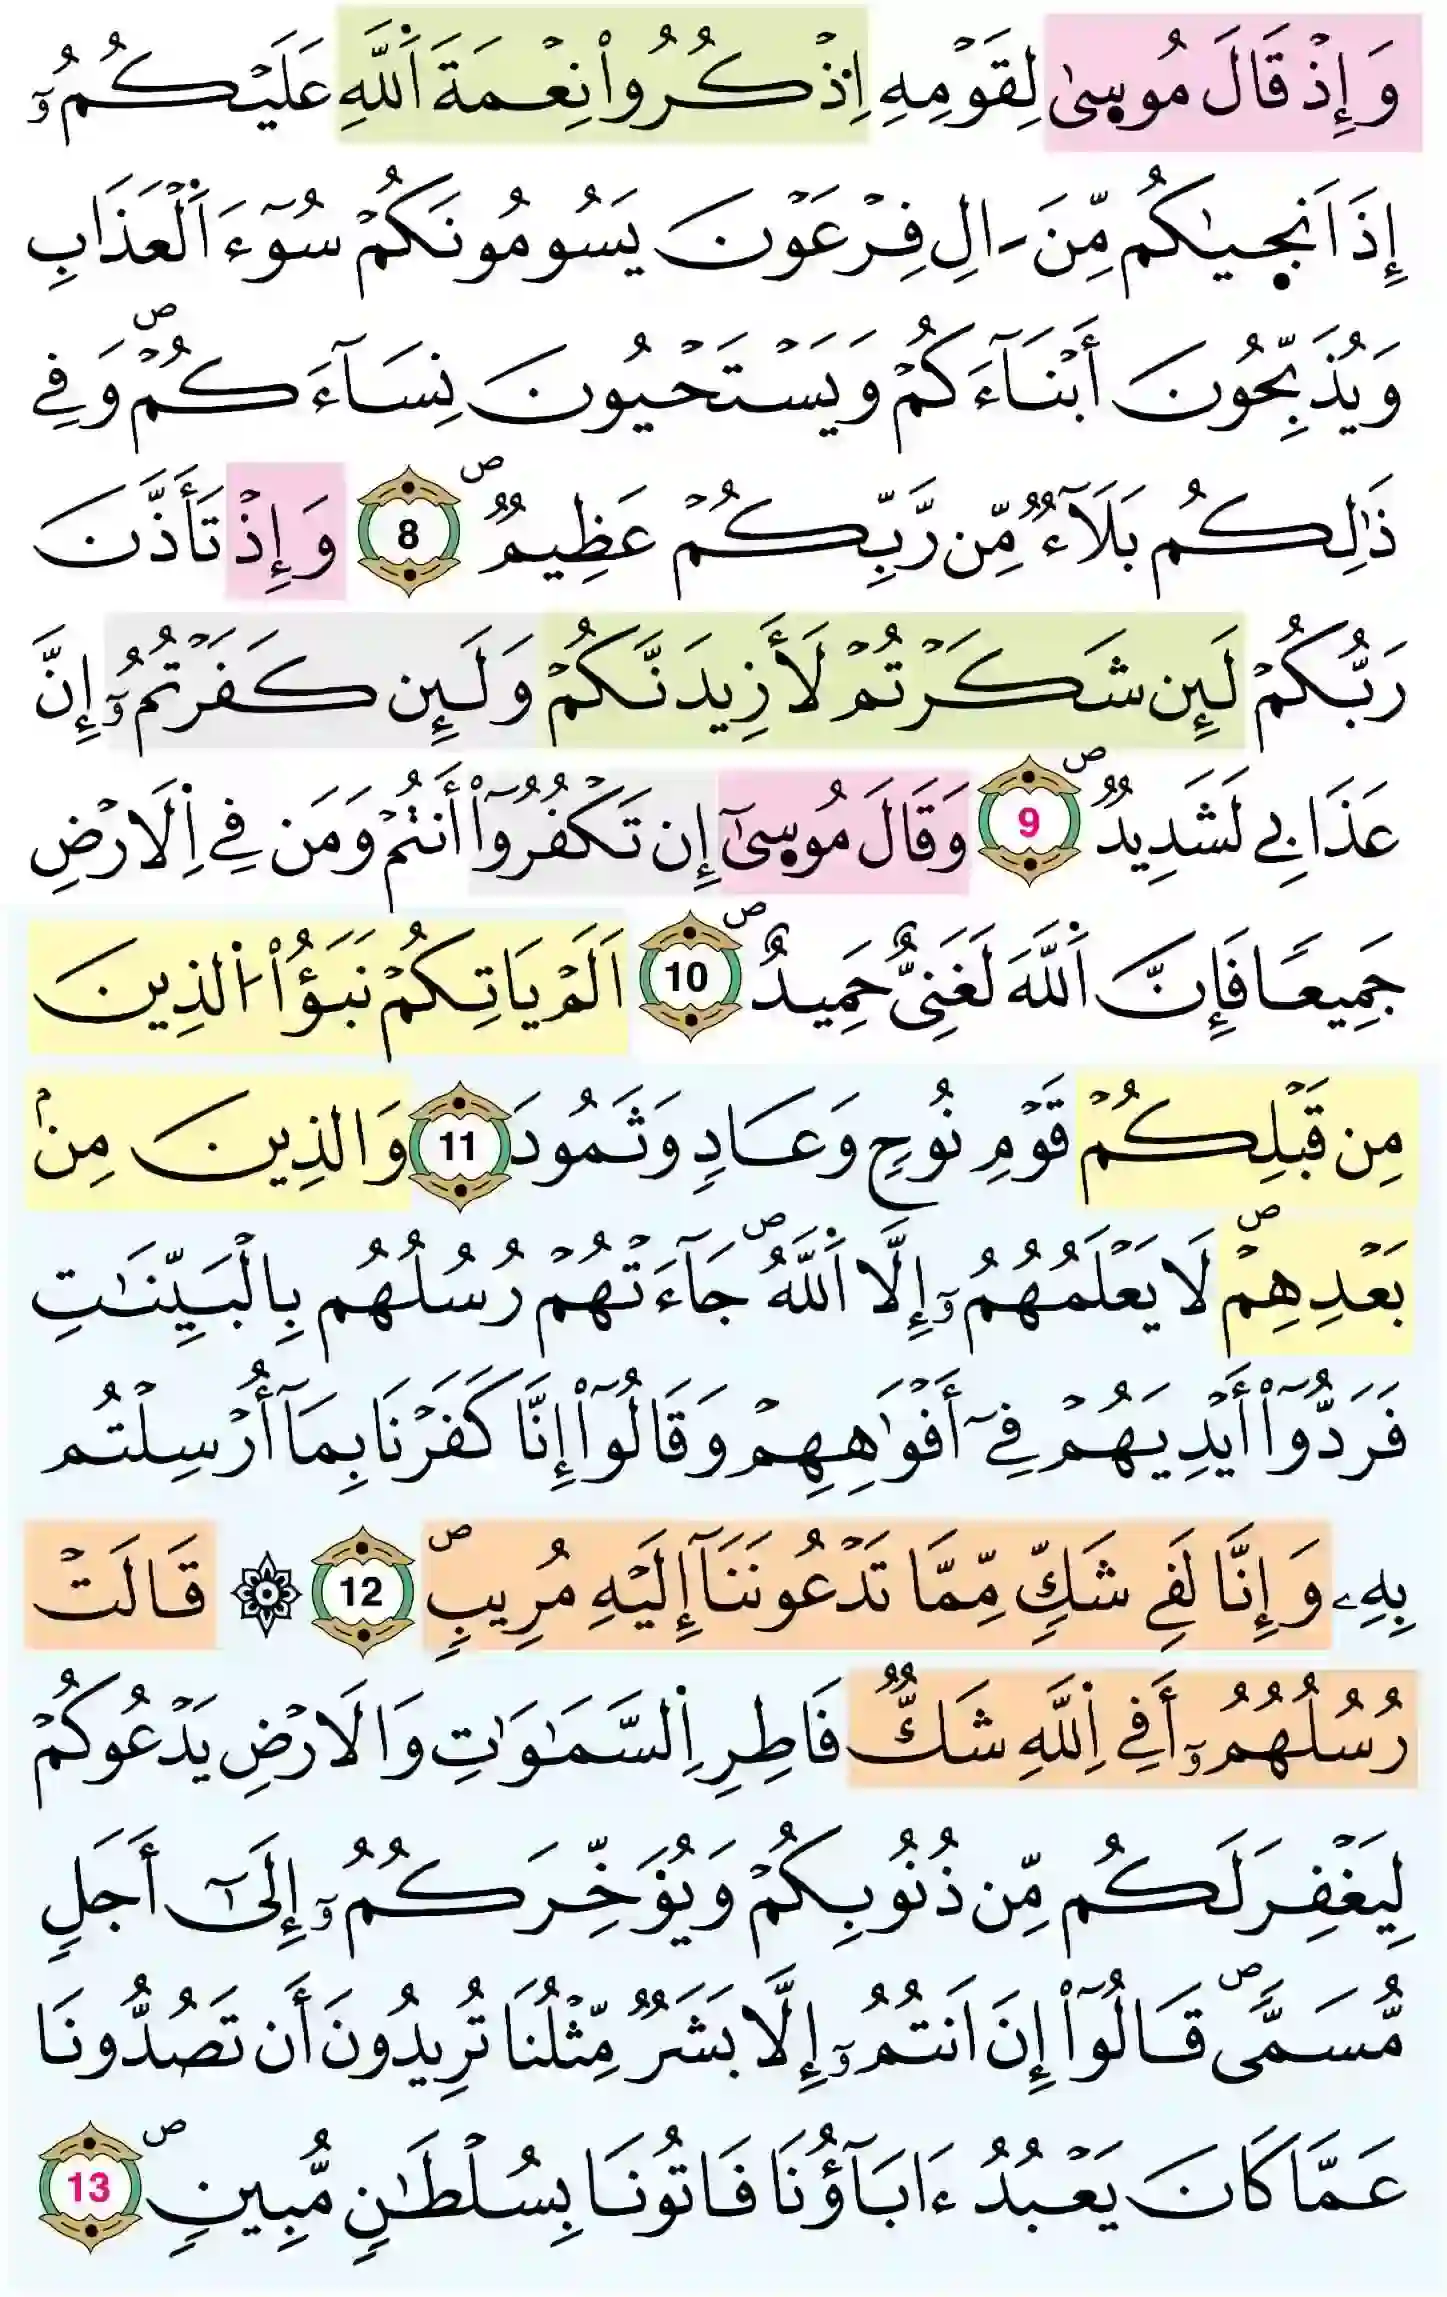 وَإِذْ قَالَ مُوس۪ىٰ لِقَوْمِهِ اِذْكُرُواْ نِعْمَةَ اَ۬للَّهِ عَلَيْكُمُۥٓ
إِذَ اَنج۪يٰكُم مِّنَ اٰلِ فِرْعَوْنَ يَسُومُونَكُمْ سُوٓءَ اَ۬لْعَذَابِ
وَيُذَبِّحُونَ أَبْنَآءَكُمْ وَيَسْتَحْيُونَ نِسَآءَكُمْۖ وَفِے
ذَٰلِكُم بَلَآءٞ مِّن رَّبِّكُمْ عَظِيمٞۖ 8 وَإِذْ تَأَذَّنَ
رَبُّكُمْ لَئِن شَكَرْتُمْ لَأَزِيدَنَّكُمْ وَلَئِن كَفَرْتُمُۥٓ إِنَّ
عَذَابِے لَشَدِيدٞۖ 9 وَقَالَ مُوس۪ىٰٓ إِن تَكْفُرُوٓاْ أَنتُمْ وَمَن فِے اِ۬لَارْضِ
جَمِيعًا فَإِنَّ اَ۬للَّهَ لَغَنِيٌّ حَمِيدٌۖ 10 اَلَمْ يَاتِكُمْ نَبَؤُاْ اُ۬لذِينَ
مِن قَبْلِكُمْ قَوْمِ نُوحٖ وَعَادٖ وَثَمُودَ 11 وَالذِينَ مِنۢ
بَعْدِهِمْۖ لَا يَعْلَمُهُمُۥٓ إِلَّا اَ۬للَّهُۖ جَآءَتْهُمْ رُسُلُهُم بِالْبَيِّنَٰتِ
فَرَدُّوٓاْ أَيْدِيَهُمْ فِےٓ أَفْوَٰهِهِمْ وَقَالُوٓاْ إِنَّا كَفَرْنَا بِمَآ أُرْسِلْتُم
بِهِۦ وَإِنَّا لَفِے شَكّٖ مِّمَّا تَدْعُونَنَآ إِلَيْهِ مُرِيبٖۖ 12 ۞ قَالَتْ
رُسُلُهُمُۥٓ أَفِے اِ۬للَّهِ شَكّٞ فَاطِرِ اِ۬لسَّمَٰوَٰتِ وَالَارْضِ يَدْعُوكُمْ
لِيَغْفِرَ لَكُم مِّن ذُنُوبِكُمْ وَيُؤَخِّرَكُمُۥٓ إِلَىٰٓ أَجَلٖ
مُّسَمّٗىۖ قَالُوٓاْ إِنَ اَنتُمُۥٓ إِلَّا بَشَرٞ مِّثْلُنَا تُرِيدُونَ أَن تَصُدُّونَا
عَمَّا كَانَ يَعْبُدُ ءَابَآؤُنَا فَاتُونَا بِسُلْطَٰنٖ مُّبِينٖۖ 13